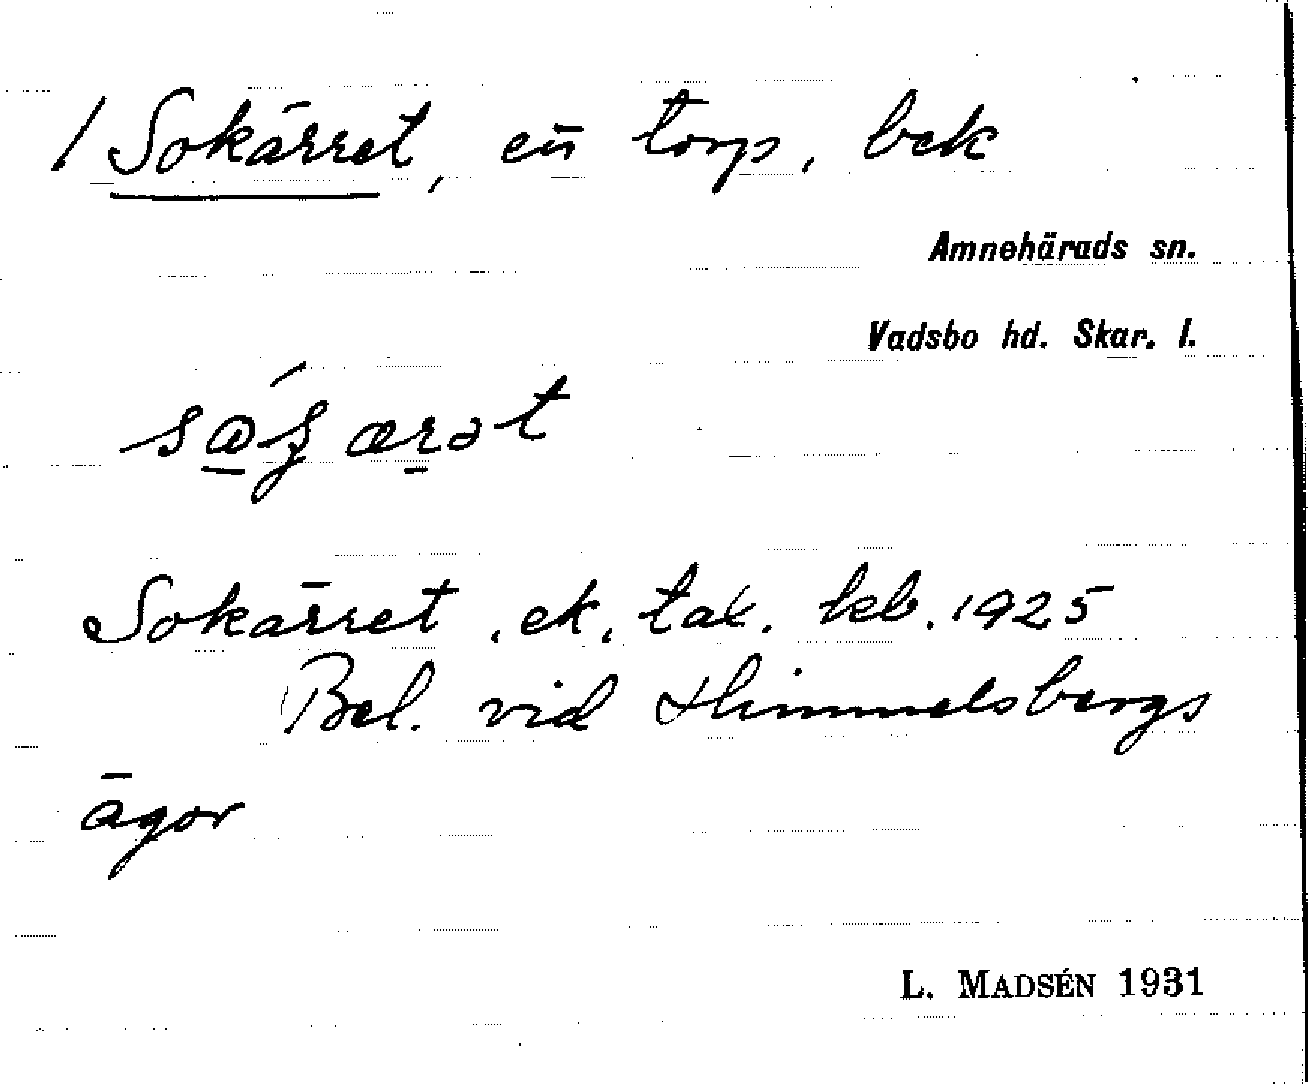 1 Sokärret, en torp, bek
Amnehärads sn.
Vadsbo hd. Skar. l.
Sokärret, ek. tax. kb. 1925
Bel. vid Himmelsbergs
ägor
L. MADSÉN 1931